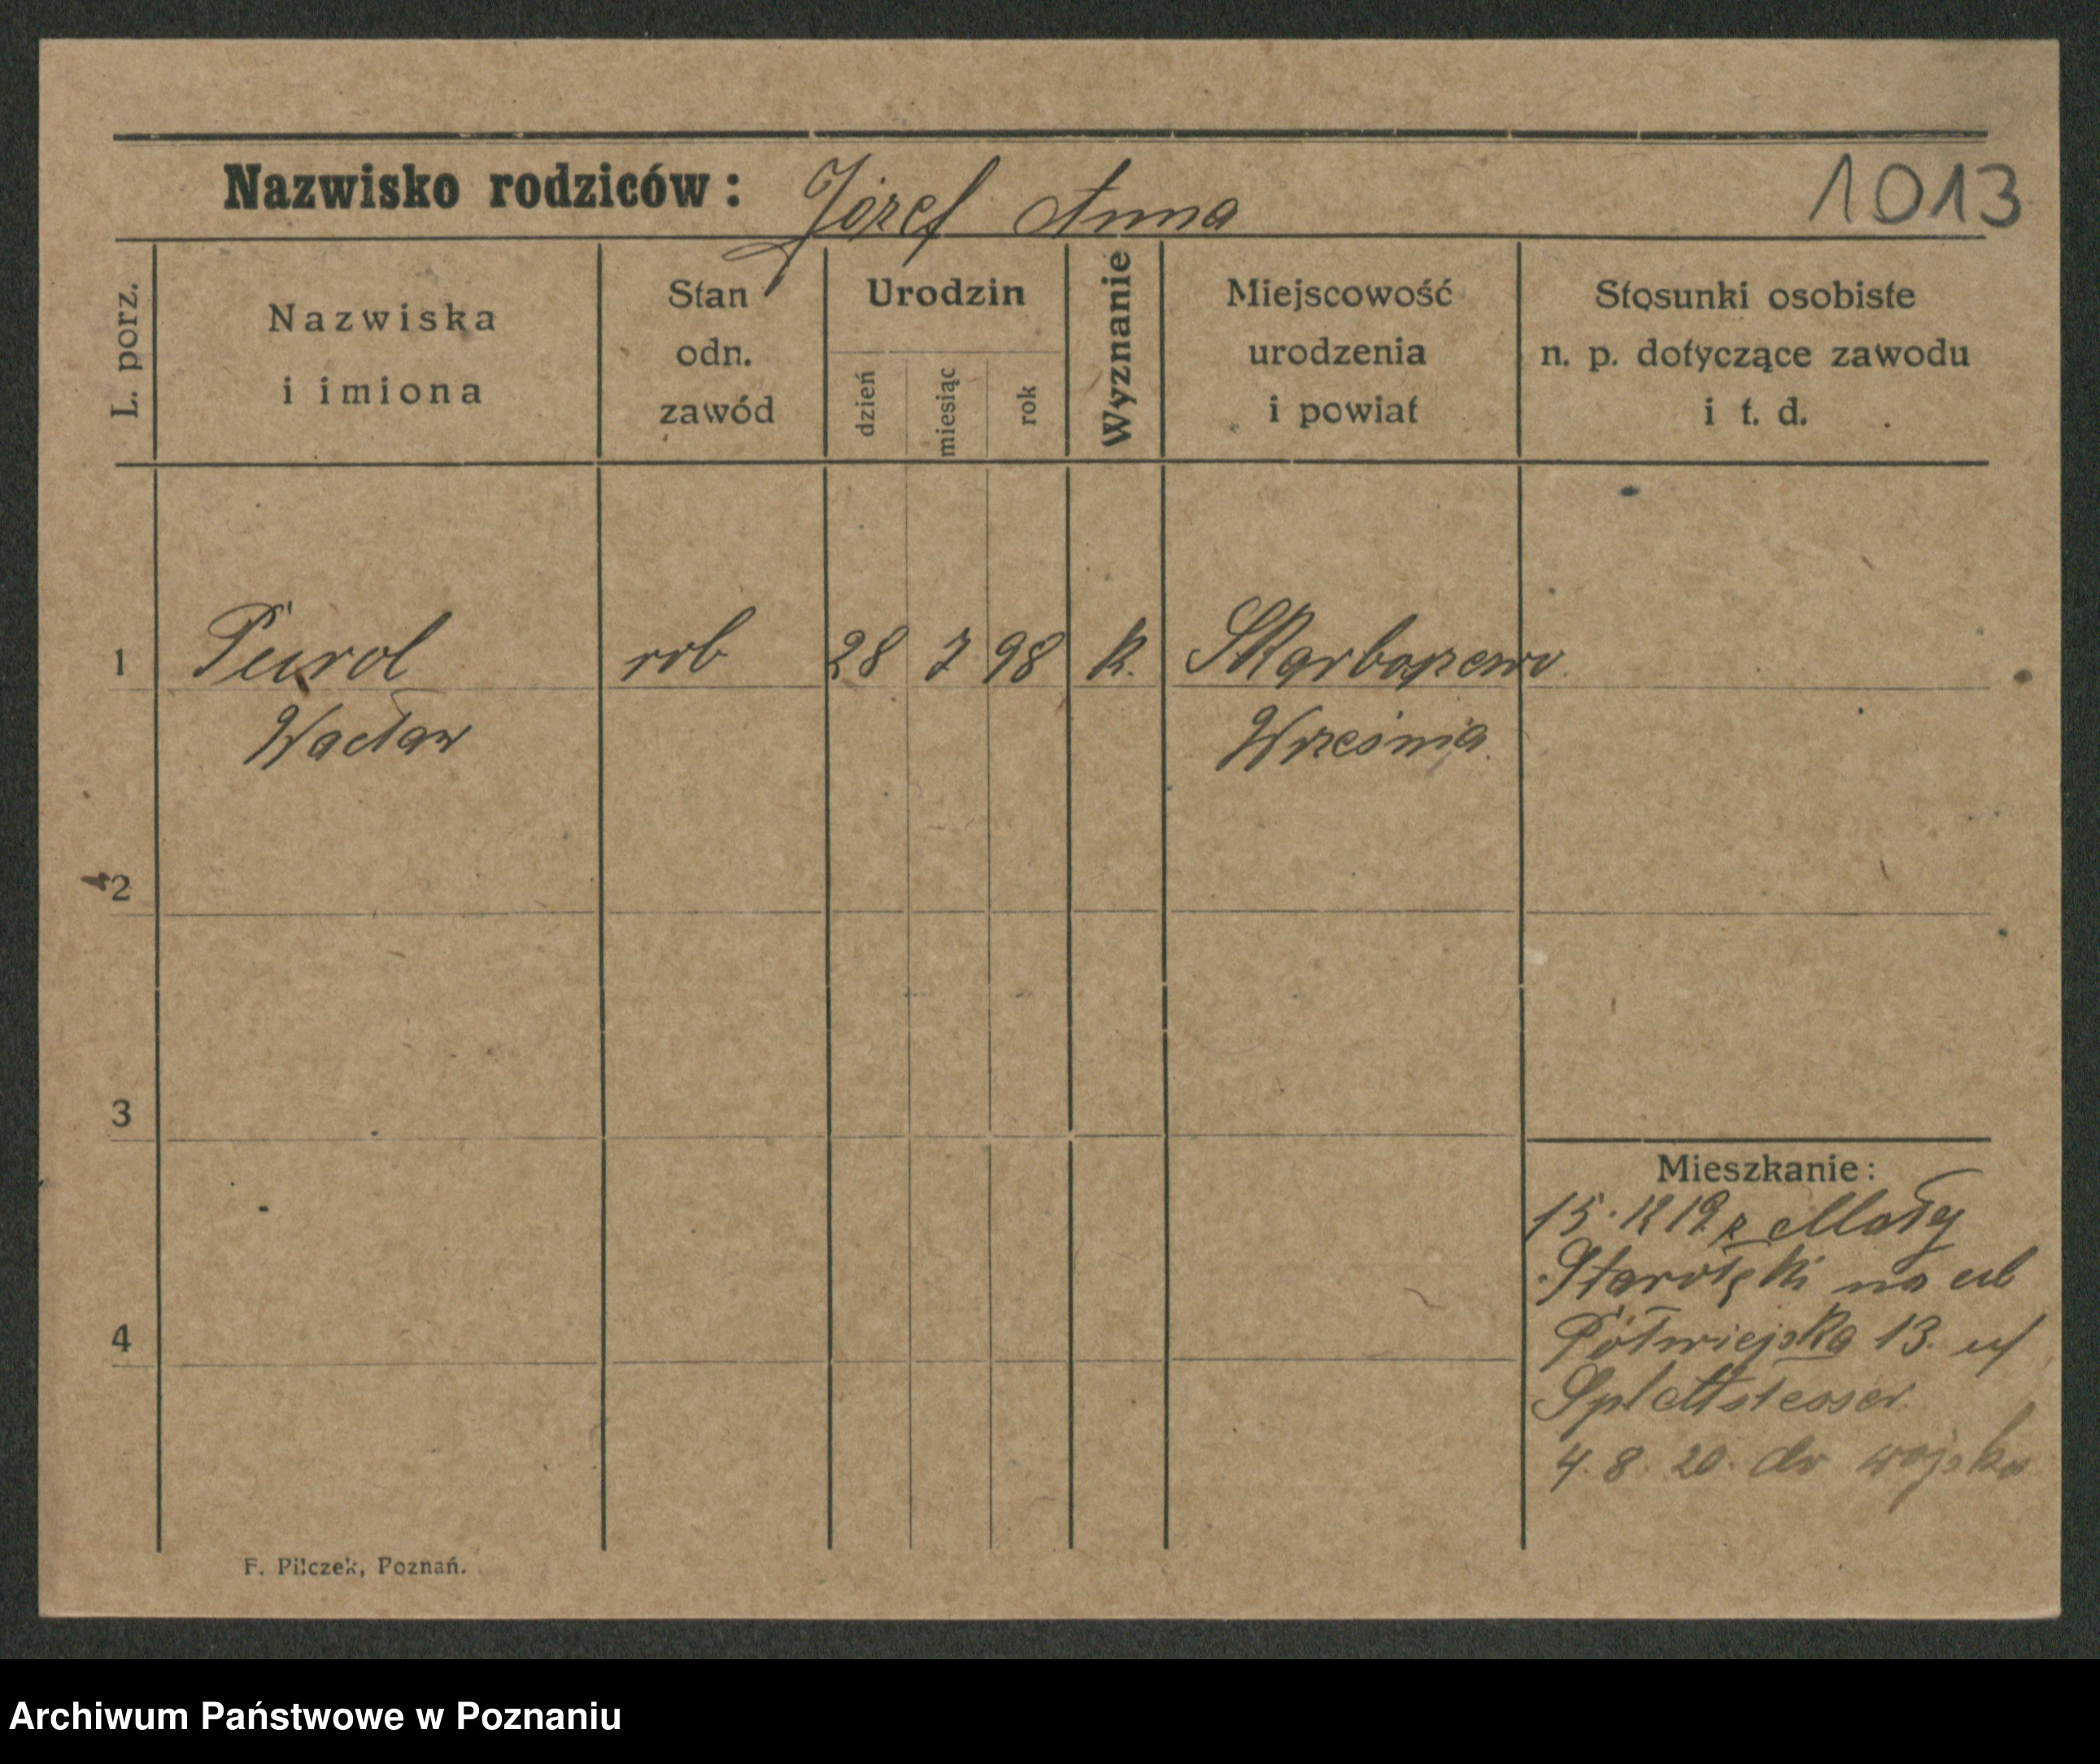 Nazwisko rodziców: Józef Anna 1013
L. porz.
Nazwiska i imiona
Stan odn. zawód
Urodzin
dzień
miesiąc
rok
Wyznanie
Miejscowość urodzenia i powiat
Stosunki osobiste n. p. dotyczące zawodu i t. d.
1 Purol rob 28 7 98 k. Skarboszewo
Wacław Września
2
3
4
Mieszkanie:
15. 12 19 z Mały
Starołęki na ul
Półwiejska 13. u/
Splettstesser
4. 8. 20. do wojska
F. Pilczek, Poznań.
Archiwum Państwowe w Poznaniu